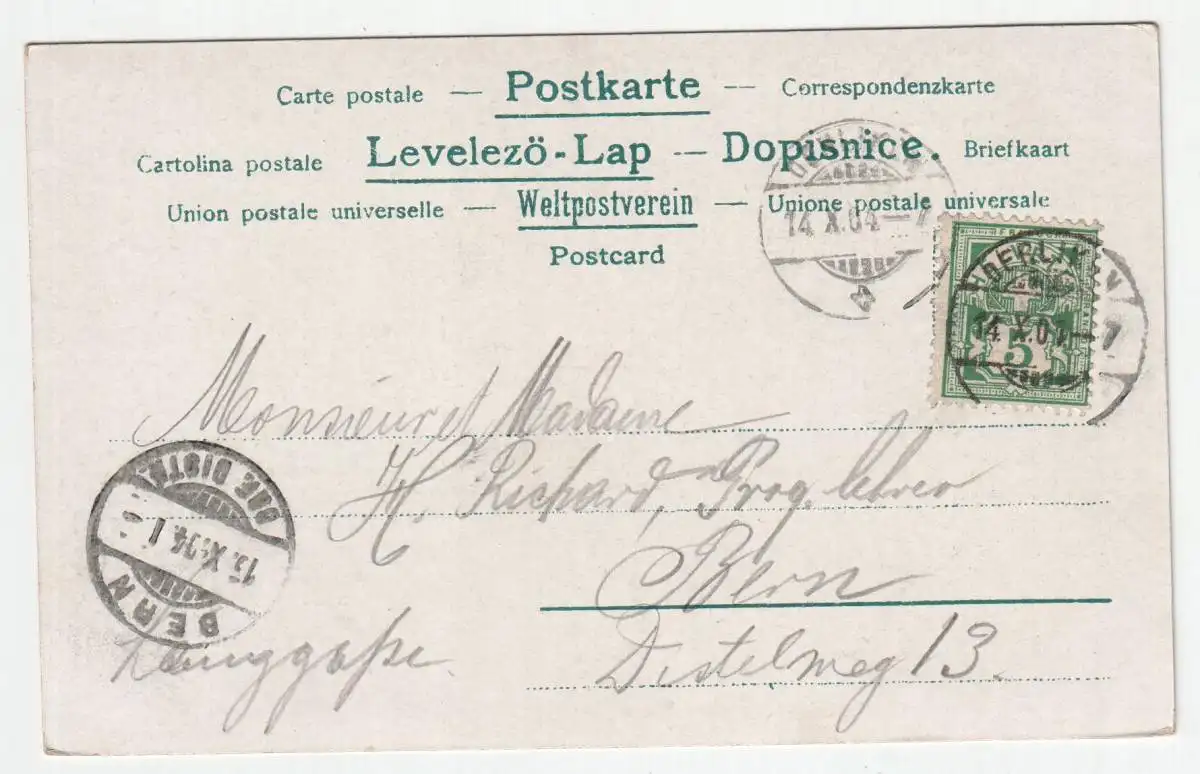 Carte postale — Postkarte — Correspondenzkarte
Cartolina postale Levelezö-Lap — Dopisnice. Briefkaart
Union postale universelle — Weltpostverein — Unione postale universale
Postcard
14. X.04
OERLIKON
14. X.04
5
Monsieur et Madame
H. Richard, Prog. lehrer
Bern
Länggaße. Distelweg 13.
BERN
15. X. 04